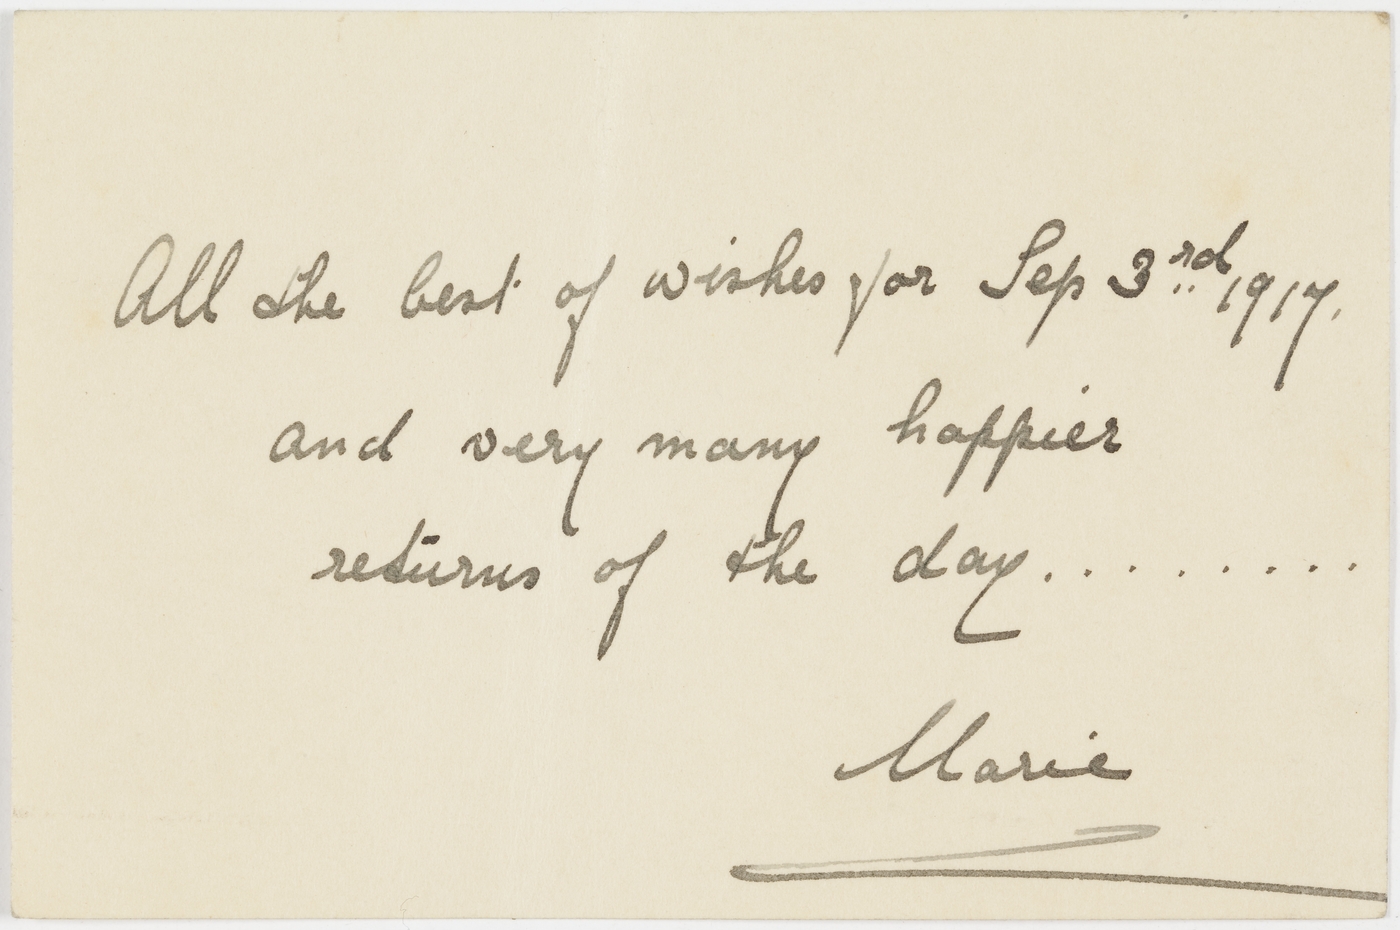 All the best of wishes for Sep 3rd 1917.
and very many happier
returns of the day.........
Marie